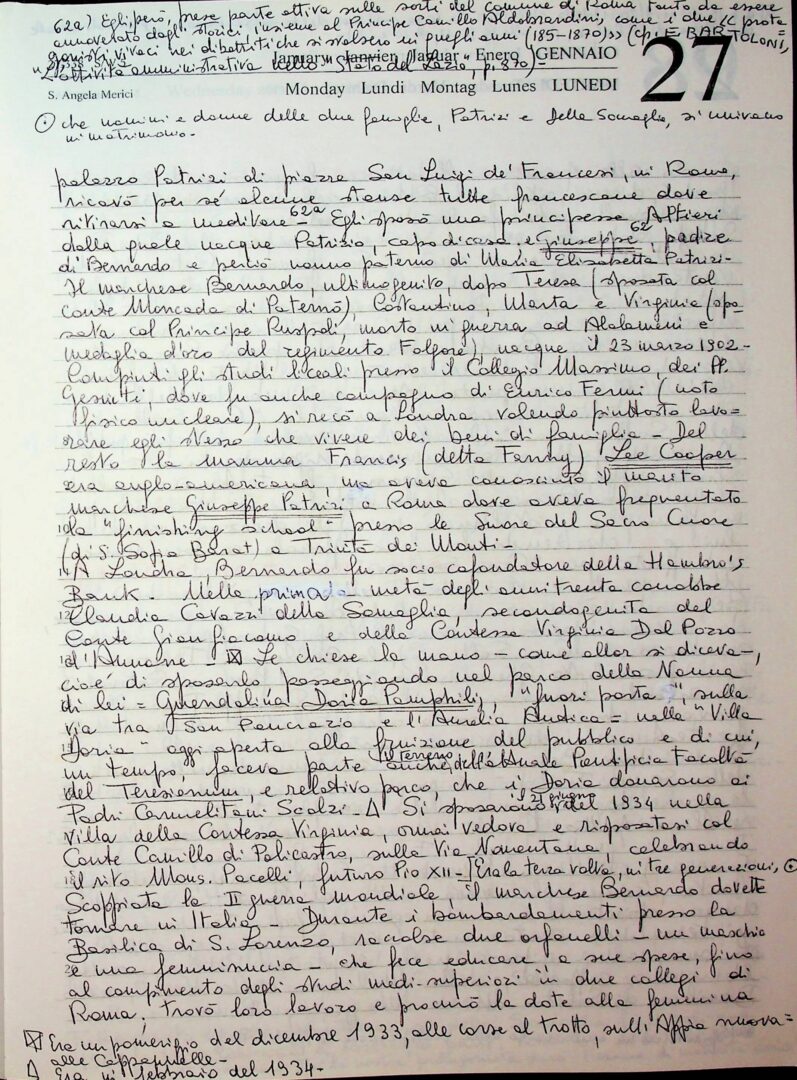 62a) Egli, però, prese parte attiva sulle sorti del comune di Roma tanto da essere
annoverato dagli storici, insieme al Principe Camillo Aldobrandini, come i due "prota=
gonisti vivaci nei dibattiti che si svolsero in quegli anni (185-1870)" (cfr. E. BARTOLONI,
"L'attività amministrativa nello "Stato del Lazio", p. 870)-
January Janvier Januar Enero GENNAIO
27
S. Angela Merici
Monday Lundi Montag Lunes LUNEDI
⊙ che uomini e donne delle due famiglie, Patrizi e della Somaglia, si univano
in matrimonio-
palazzo Patrizi di piazza San Luigi de' Francesi, in Roma,
ricavò per sé alcune stanze tutte francescane dove
ritirarsi a meditare- 62a Egli sposò una principessa Altieri
dalla quale nacque Patrizio, capo di casa, e Giuseppe 62, padre
di Bernardo e perciò nonno paterno di Maria Elisabetta Patrizi-
Il marchese Bernardo, ultimogenito, dopo Teresa (sposata col
conte Moncada di Paternò), Costantino, Marta e Virginia (spo=
sata col Principe Ruspoli, morto in guerra ad Alalamein e
medaglia d'oro del regimento Folgore) nacque il 23 marzo 1902-
Compiuti gli studi liceali presso il Collegio Massimo, dei PP.
Gesuiti, dove fu anche compagno di Enrico Fermi (noto
fisico nucleare), si recò a Londra volendo piuttosto lavo=
rare egli stesso che vivere dei beni di famiglia - Del
resto la mamma Francis (detta Fanny) Lee Cooper
era anglo-americana, ma aveva conosciuto il marito
marchese Giuseppe Patrizi a Roma dove aveva frequentato
la "finishing school" presso le Suore del Sacro Cuore
(di S. Sofia Barat) a Trinità dei Monti-
A Londra, Bernardo fu socio cofondatore della Hambro's
Bank. Nella prima metà degli anni trenta conobbe
Claudia Cavazzi della Somaglia, secondogenita del
Conte Gian Giacomo e della Contessa Virginia Dal Pozzo
d'Annone - ⊠ Le chiese la mano - come allor si diceva-,
cioè di sposarlo passeggiando nel parco della Nonna
di lei = Guendalina Doria Pamphilj, "fuori porta", sulla
via tra San Pancrazio e l'Aurelia Antica = nella "Villa
Doria" oggi aperta alla fruizione del pubblico e di cui,
un tempo, faceva parte anche il terreno dell'attuale Pontificia Facoltà
del Teresianum, e relativo parco, che i Doria donarono ai
Padri Carmelitani Scalzi - Δ Si sposarono il 21 giugno del 1934 nella
villa della Contessa Virginia, ormai vedova e risposatasi col
Conte Camillo di Policastro, sulla Via Nomentana, celebrando
il rito Mons. Pacelli, futuro Pio XII - [Era la terza volta, in tre generazioni, ⊙
Scoppiata la II guerra mondiale, il marchese Bernardo dovette
tornare in Italia - Durante i bombardamenti presso la
Basilica di S. Lorenzo, raccolse due orfanelli - un maschio
e una femminuccia - che fece educare a sue spese, fino
al compimento degli studi medi-superiori in due collegi di
Roma; trovò loro lavoro e procurò la dote alla femmina
⊠ Era un pomerigio del dicembre 1933, alle corse al trotto, sull'Appia nuova=
alle Cappannelle-
Δ Era in febbraio del 1934-